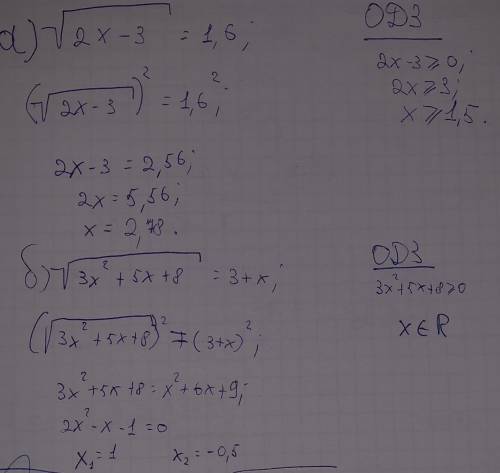 а) √(2x-3) = 1,6;
(√(2x-3))² = 1,6²;
2x-3 = 2,56;
2x = 5,56;
x = 2,78.
ОДЗ
2x-3⩾0;
2x⩾3;
x⩾1,5.
б) √(3x²+5x+8) = 3+x;
(√(3x²+5x+8))² = (3+x)²;
3x²+5x+8 = x²+6x+9;
2x²-x-1=0
x₁=1 x₂=-0,5
ОДЗ
3x²+5x+8⩾0
x∈R